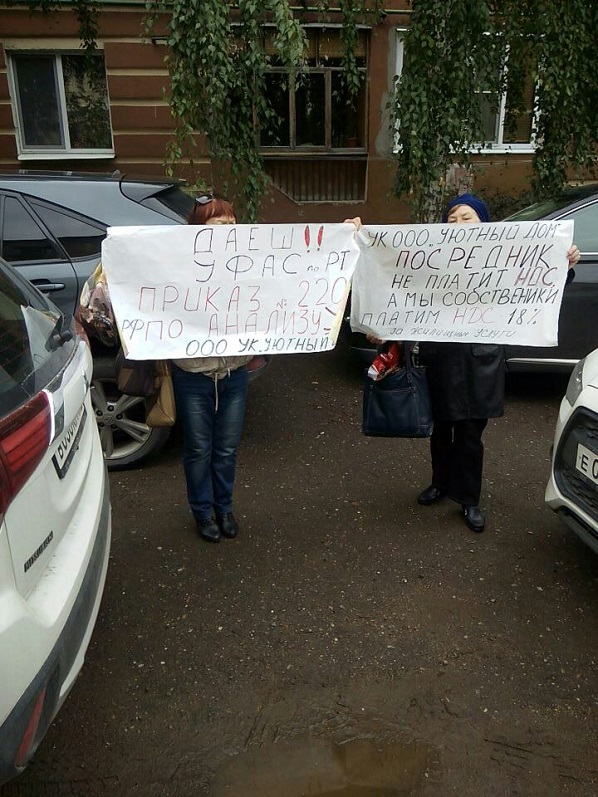 ДАЕШ!!
УФАС по РТ
ПРИКАЗ № 220
РФ ПО АНАЛИЗУ
ООО УК„УЮТНЫЙ
УК ООО„УЮТНЫЙ ДОМ
ПОСРЕДНИК
НЕ ПЛАТИТ НДС,
А МЫ СОБСТВЕНИКИ
ПЛАТИМ НДС 18%
ЗА ЖИЛИЩНЫЕ УСЛУГИ